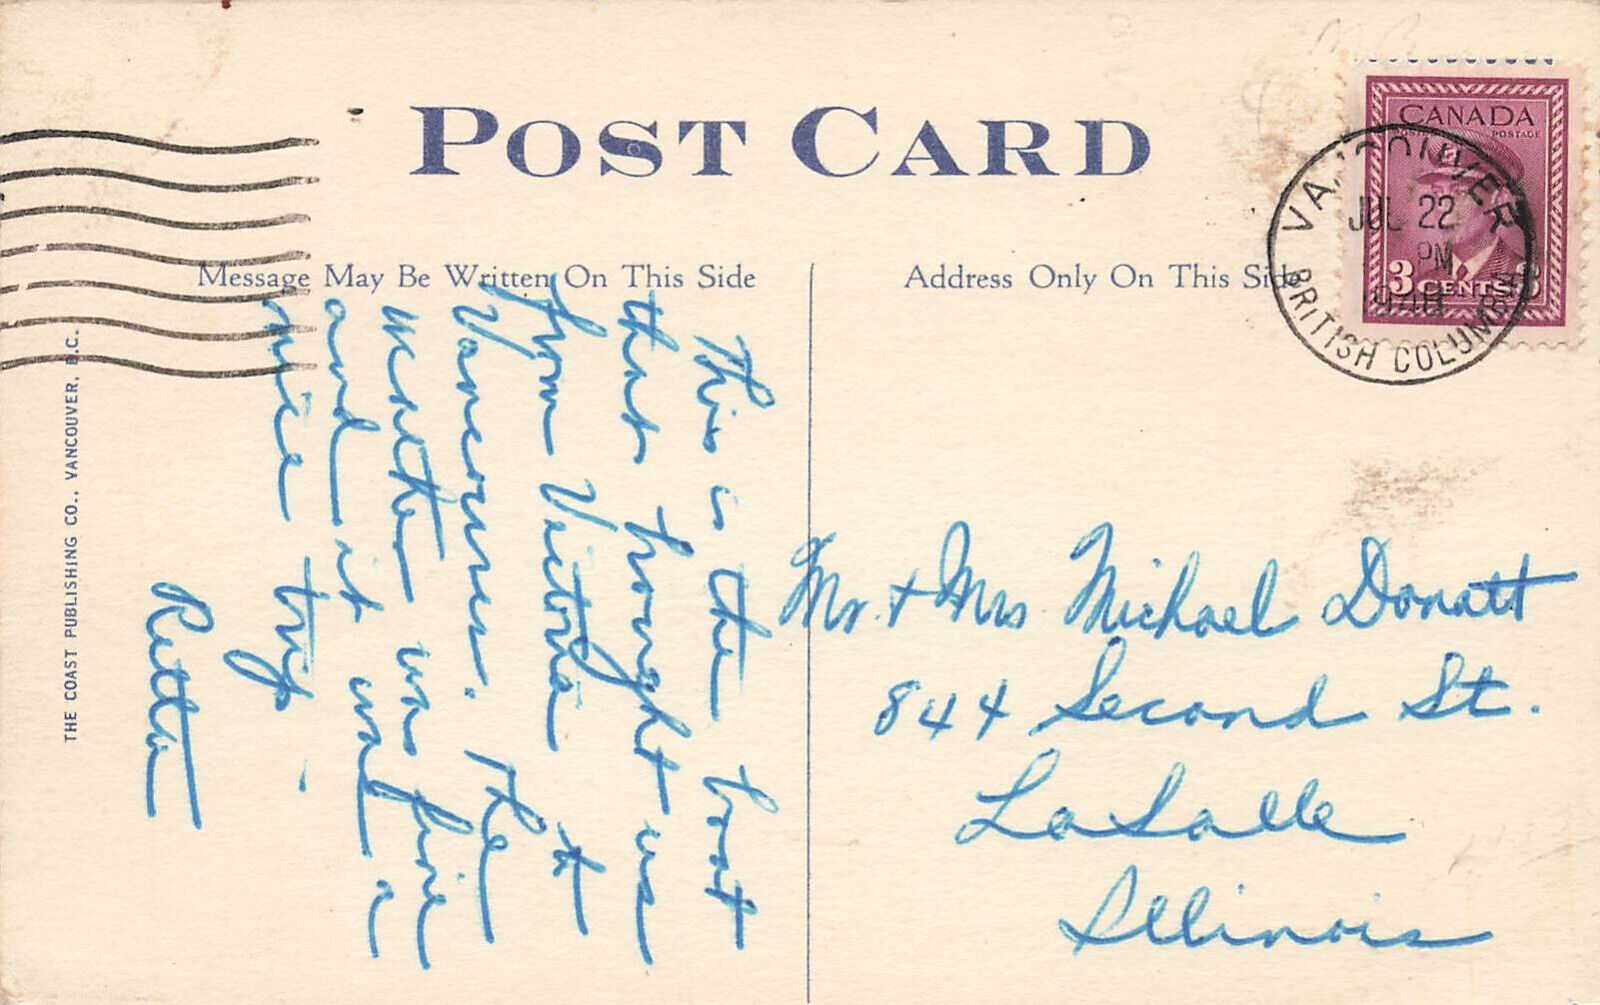 POST CARD
Message May Be Written On This Side
Address Only On This Side
CANADA
POSTAGE POSTAGE
3 CENTS 3
VANCOUVER
JUL 22
PM
BRITISH COLUMBIA
This is the boat
that brought us
from Victoria to
Vancouver. The
weather was fine
and it was a
nice trip.
Retta
Mr. + Mrs. Michael Donatt
844 Second St.
LaSalle
Illinois
THE COAST PUBLISHING CO., VANCOUVER, B.C.